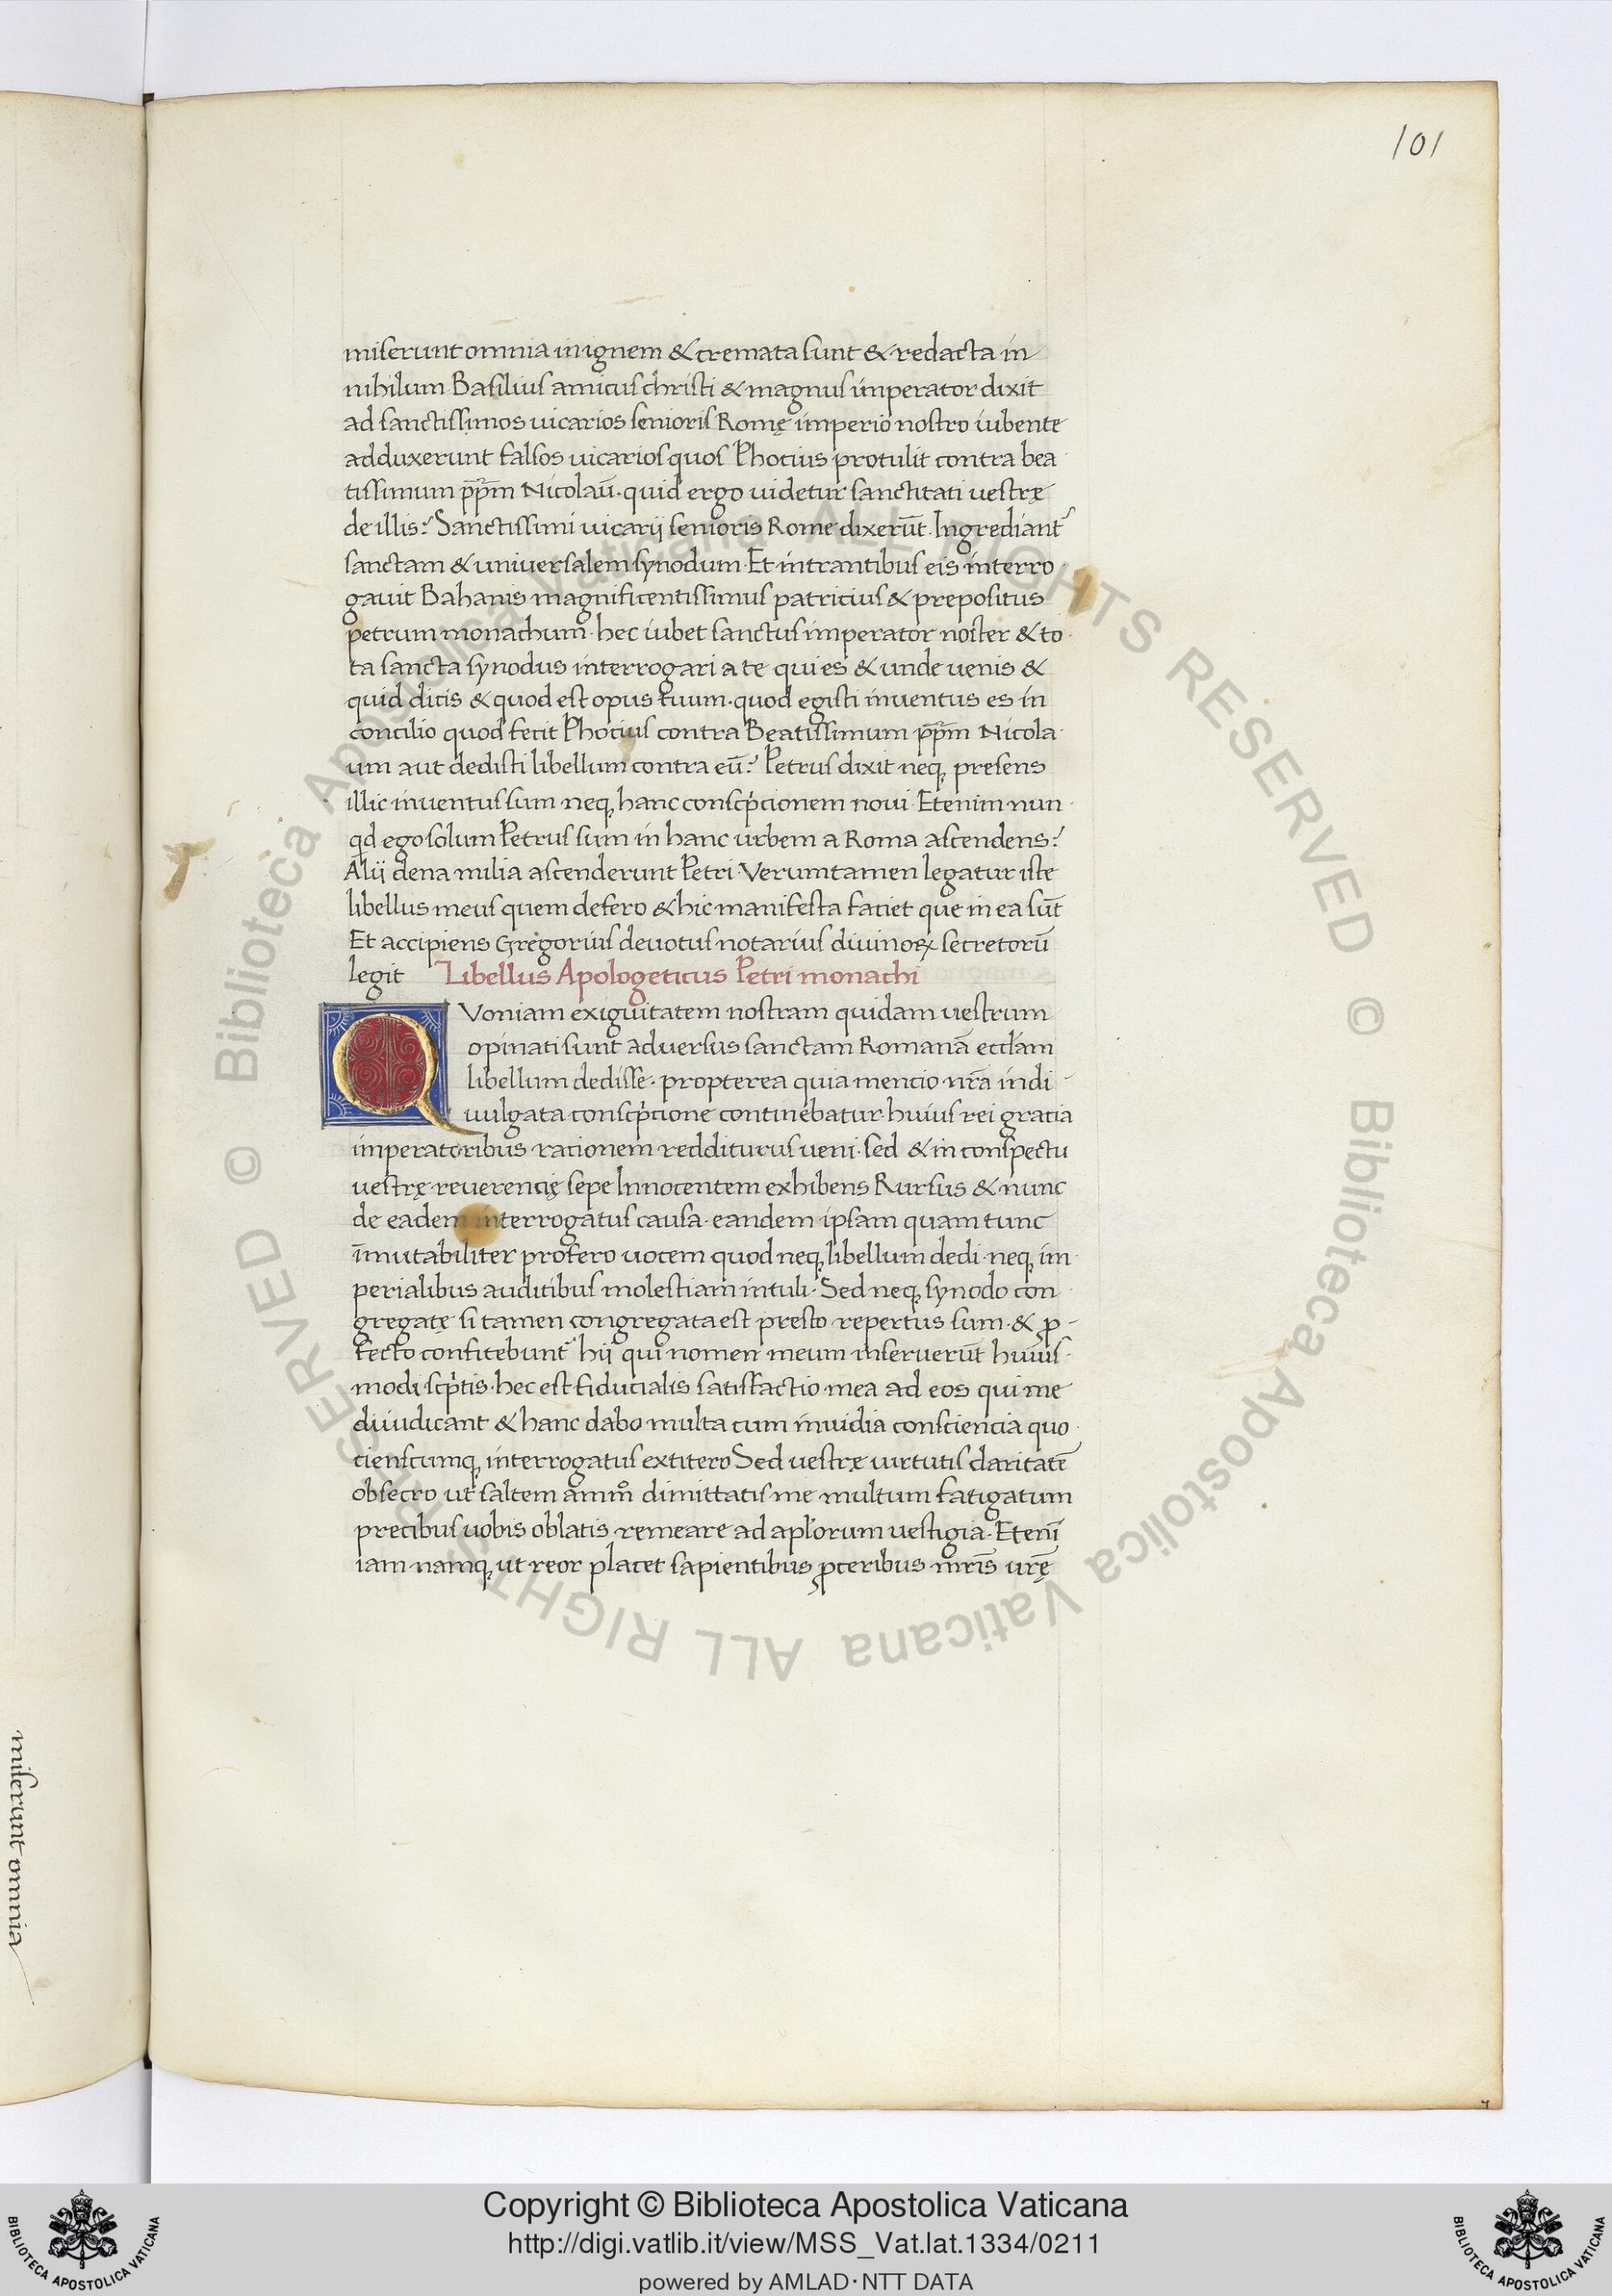 101
miserunt omnia in ignem & cremata sunt & redacta in
nihilum Basilius amicus christi & magnus imperator dixit
ad sanctissimos uicarios senioris Romę imperio nostro iubente
adduxerunt falsos uicarios quos Phocius protulit contra bea
tissimum pp̄m Nicolaū. quid ergo uidetur sanctitati uestrę
de illis? Sanctissimi uicarij senioris Rome dixerūt. Ingrediant᷑
sanctam & uniuersalem synodum. Et intrantibus eis interro
gauit Bahanis magnificentissimus patricius & prepositus
petrum monachum. hec iubet sanctus imperator noster & to
ta sancta synodus interrogari a te qui es & unde uenis &
quid dicis & quod est opus tuum. quod egisti inuentus es in
concilio quod fecit Phocius contra Beatissimum pp̄m Nicola
um aut dedisti libellum contra eū? Petrus dixit neq, presens
illic inuentus sum neq, hanc conscp̄cionem noui. Etenim nun
qd ego solum Petrus sum in hanc urbem a Roma ascendens?
Alii dena milia ascenderunt Petri. Verumtamen legatur iste
libellus meus quem defero & hic manifesta faciet que in ea sūt
Et accipiens Gregorius deuotus notarius diuinoꝝ secretorū
legit Libellus Apologeticus Petri monachi
QVoniam exiguitatem nostram quidam uestrum
opinati sunt aduersus sanctam Romanā eccl'am
libellum dedisse. propterea quia mencio nr̄a in di
uulgata conscp̄cione continebatur. huius rei gracia
imperatoribus rationem redditurus ueni. sed & in conspectu
uestrę reuerencię sepe Innocentem exhibens Rursus & nunc
de eadem interrogatus causa. eandem ipsam quam tunc
īmutabiliter profero uocem quod neq, libellum dedi. neq, im
perialibus auditibus molestiam intuli. Sed neq, synodo con
gregatę si tamen congregata est presto repertus sum. & ꝓ
fecto confitebunt᷑ hij qui nomen meum inseruerūt huius
modi scp̄tis. hec est fiducialis satisfactio mea ad eos qui me
diiudicant & hanc dabo multa cum inuidia consciencia quo
cienscumq, interrogatus extitero Sed uestrę uirtutis claritatē
obsecro ut saltem āmmō dimittatis me multum fatigatum
precibus uobis oblatis remeare ad apl'orum uestigia. Etenī
iam namq, ut reor placet sapientibus ꝓceribus mr̄is ur̄ę
miserunt omnia
© Biblioteca Apostolica Vaticana ALL RIGHTS RESERVED
© Biblioteca Apostolica Vaticana ALL RIGHTS RESERVED
BIBLIOTECA APOSTOLICA VATICANA
Copyright © Biblioteca Apostolica Vaticana
http://digi.vatlib.it/view/MSS_Vat.lat.1334/0211
powered by AMLAD·NTT DATA
BIBLIOTECA APOSTOLICA VATICANA